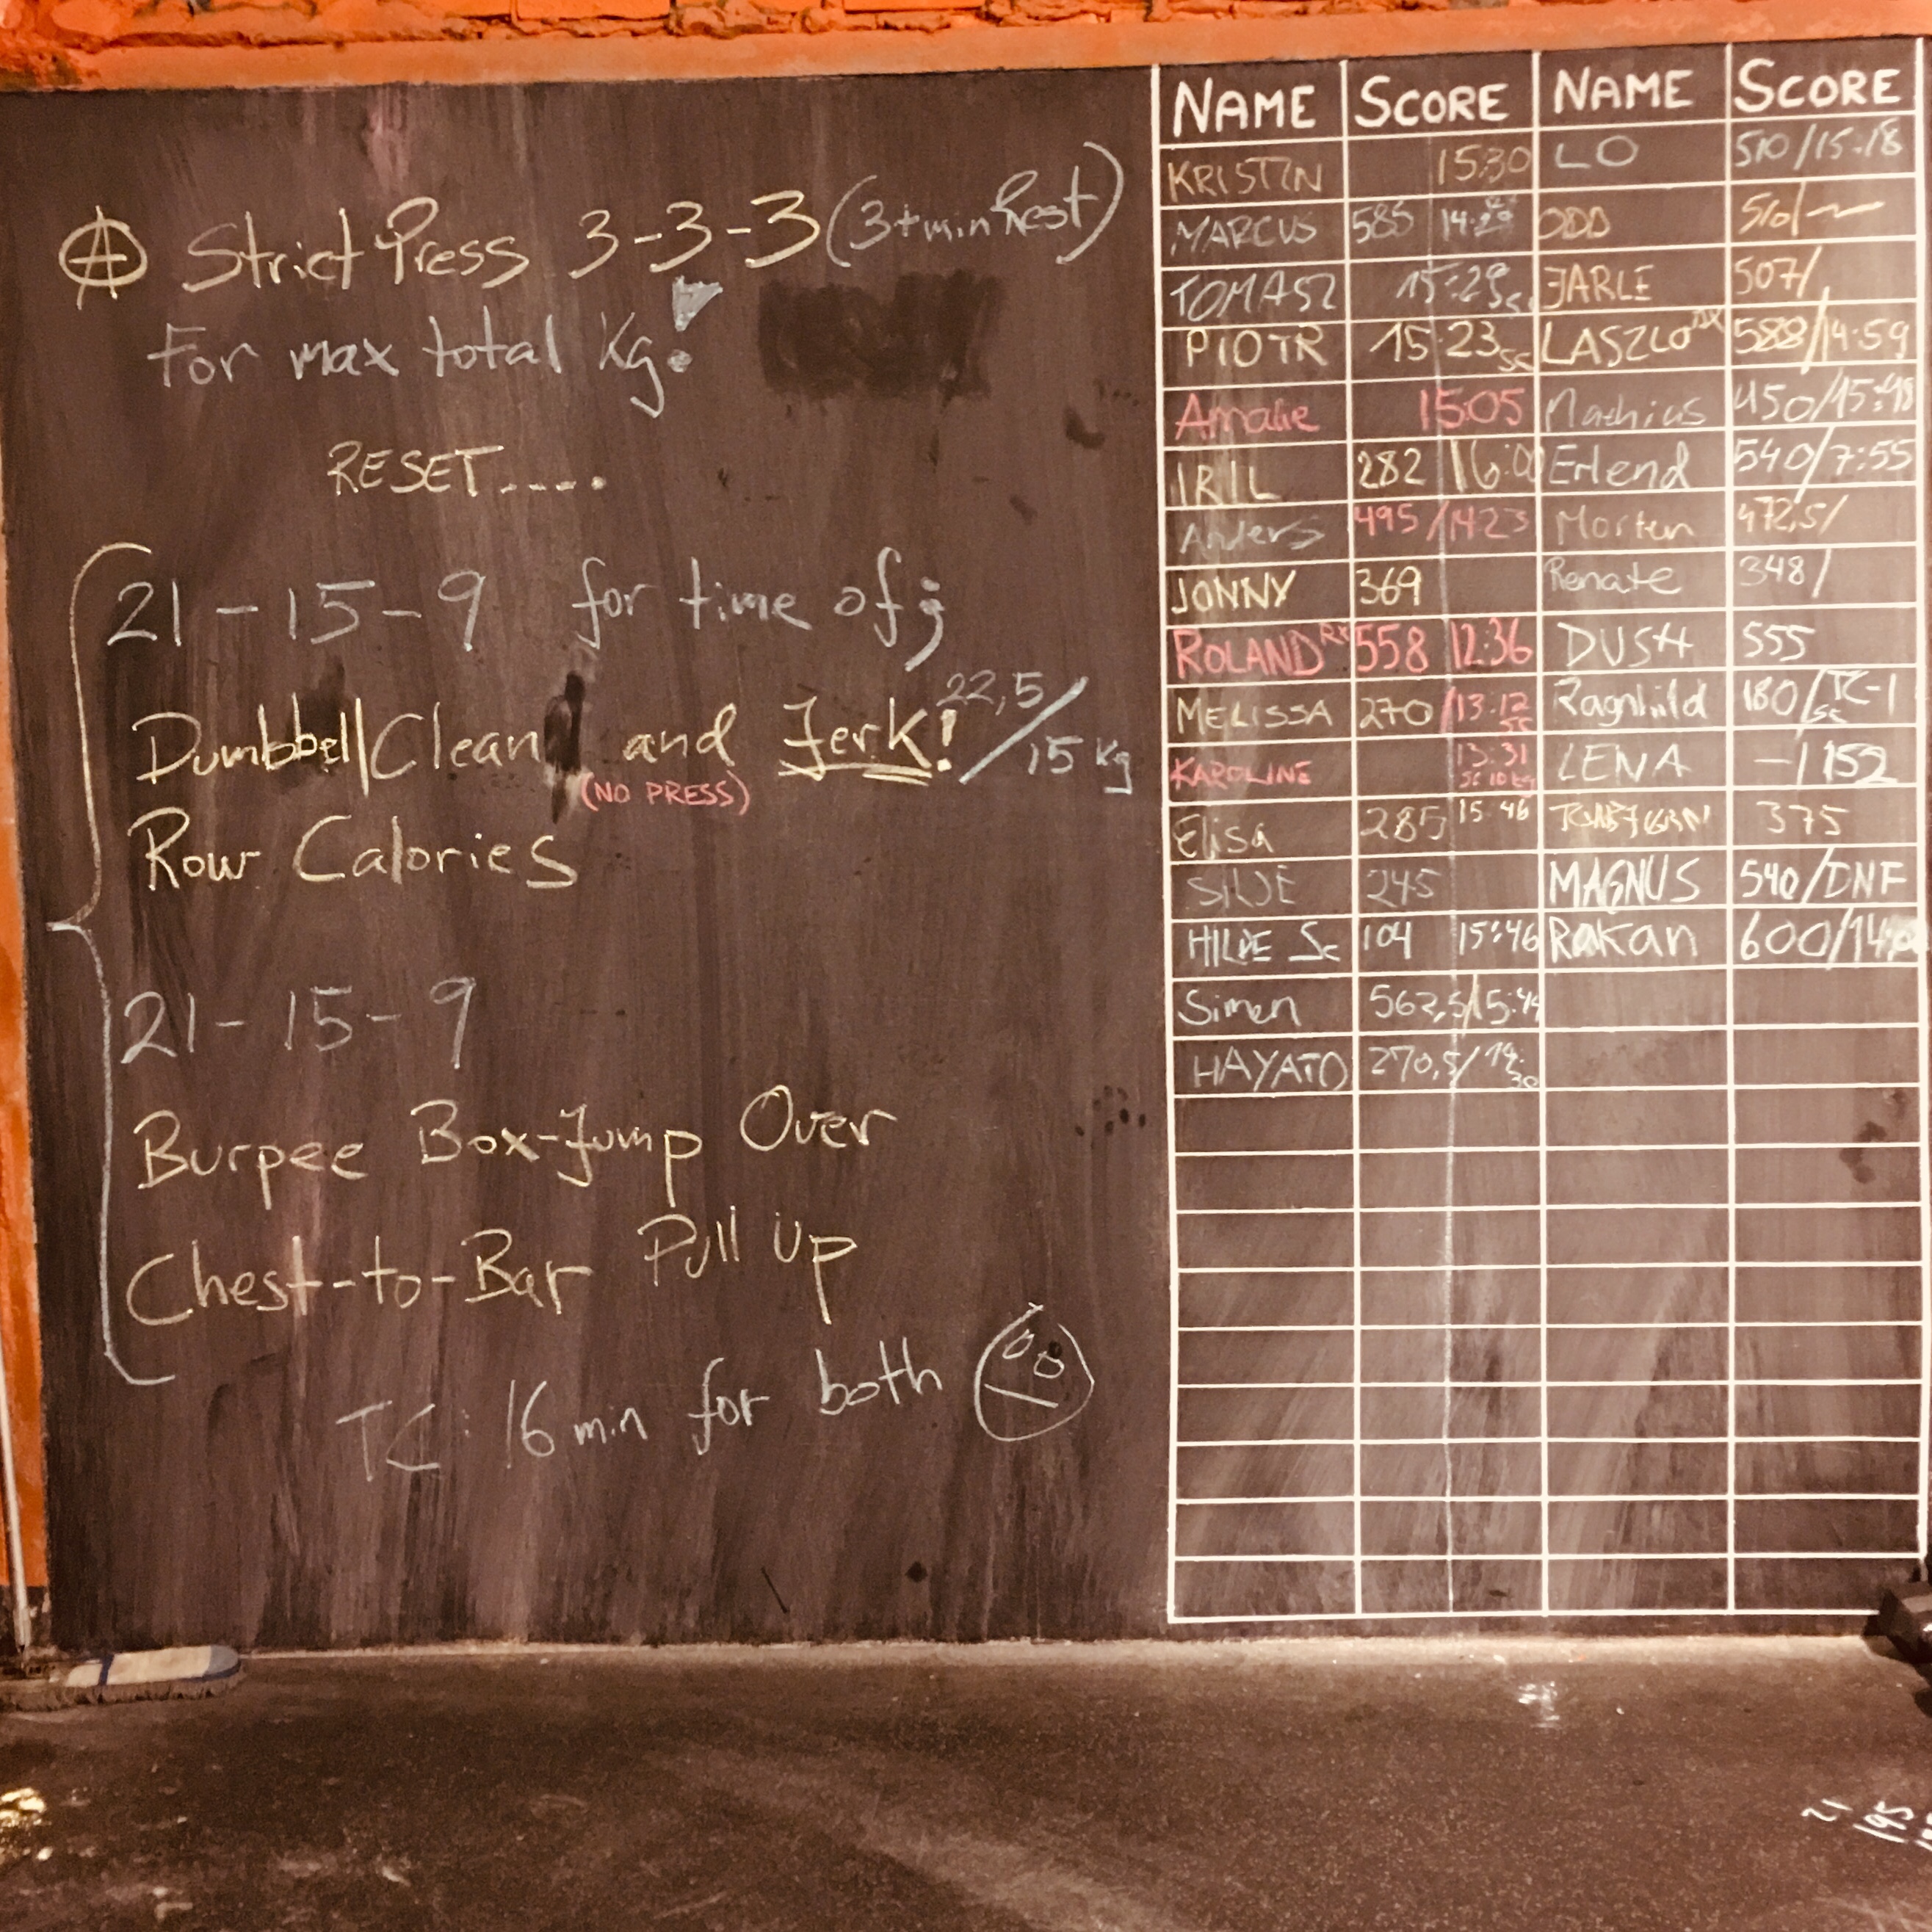 A Strict Press 3-3-3 (3+min Rest)
For max total Kg.
RESET.....
21-15-9 for time of;
Dumbbell Clean and Jerk! 22,5/15 kg
(NO PRESS)
Row Calories
21-15-9
Burpee Box-Jump Over
Chest-to-Bar Pull Up
TC: 16 min for both
NAME SCORE NAME SCORE
KRISTIN 15:30 LO 510/15:18
MARCUS 585 ODD 510/~
TOMASZ 15:29 JARLE 507/
PIOTR 15:23 sc LASZLO RX 588/14:59
Amalie 15:05 Mathius 450/15:48
IRIL 282 16:00 Erlend 540/7:55
Anders 495/1423 Morten 472,5/
JONNY 369 Renate 348/
ROLAND RX 558 12:36 DUSH 555
MELISSA 270/13:12 Ragnhild 180/TC-1 sc
KAROLINE 13:31 sc 10 kg LENA -/152
Elisa 285 15:46 375
SILJE 245 MAGNUS 540/DNF
HILDE Sc 104 15:46 Rakan 600/14:
Simen 562,5/15:44
HAYATO 270,5/14:30